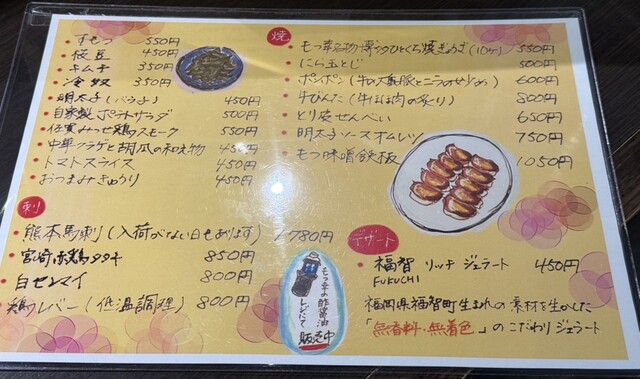 すもつ 550円
枝豆 450円
キムチ 350円
冷奴 350円
明太子(バラ子) 450円
自家製ポテトサラダ 500円
佐賀みつせ鶏スモーク 550円
中華クラゲと胡瓜の和え物 450円
トマトスライス 450円
おつまみきゅうり 450円
刺
熊本馬刺(入荷がない日もあります) 1780円
宮崎赤鶏タタキ 850円
白センマイ 800円
鶏レバー(低温調理) 800円
焼
もつ幸名物博多ひとくち焼ぎょうざ(10ケ) 550円
にら玉とじ 500円
ポンポン 600円
牛びんた(牛ほほ肉の炙り) 800円
とり皮せんべい 650円
明太子ソースオムレツ 750円
もつ味噌鉄板 1050円
もつ幸の酢醤油
レジにて
販売中
デザート
福智 リッチ ジェラート 450円
FUKUCHI
福岡県福智町生まれの素材を生かした
「無香料・無着色」のこだわりジェラート